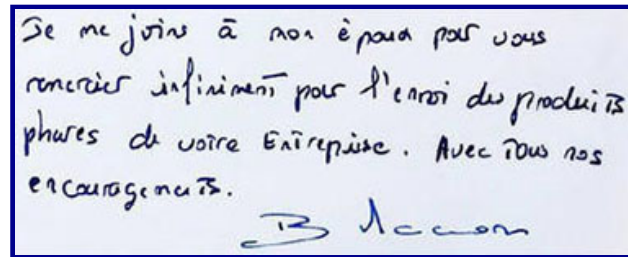 Je me joins à mon époux pour vous
remercier infiniment pour l'envoi des produits
phares de votre Entreprise. Avec Tous nos
encouragements.
B Macron